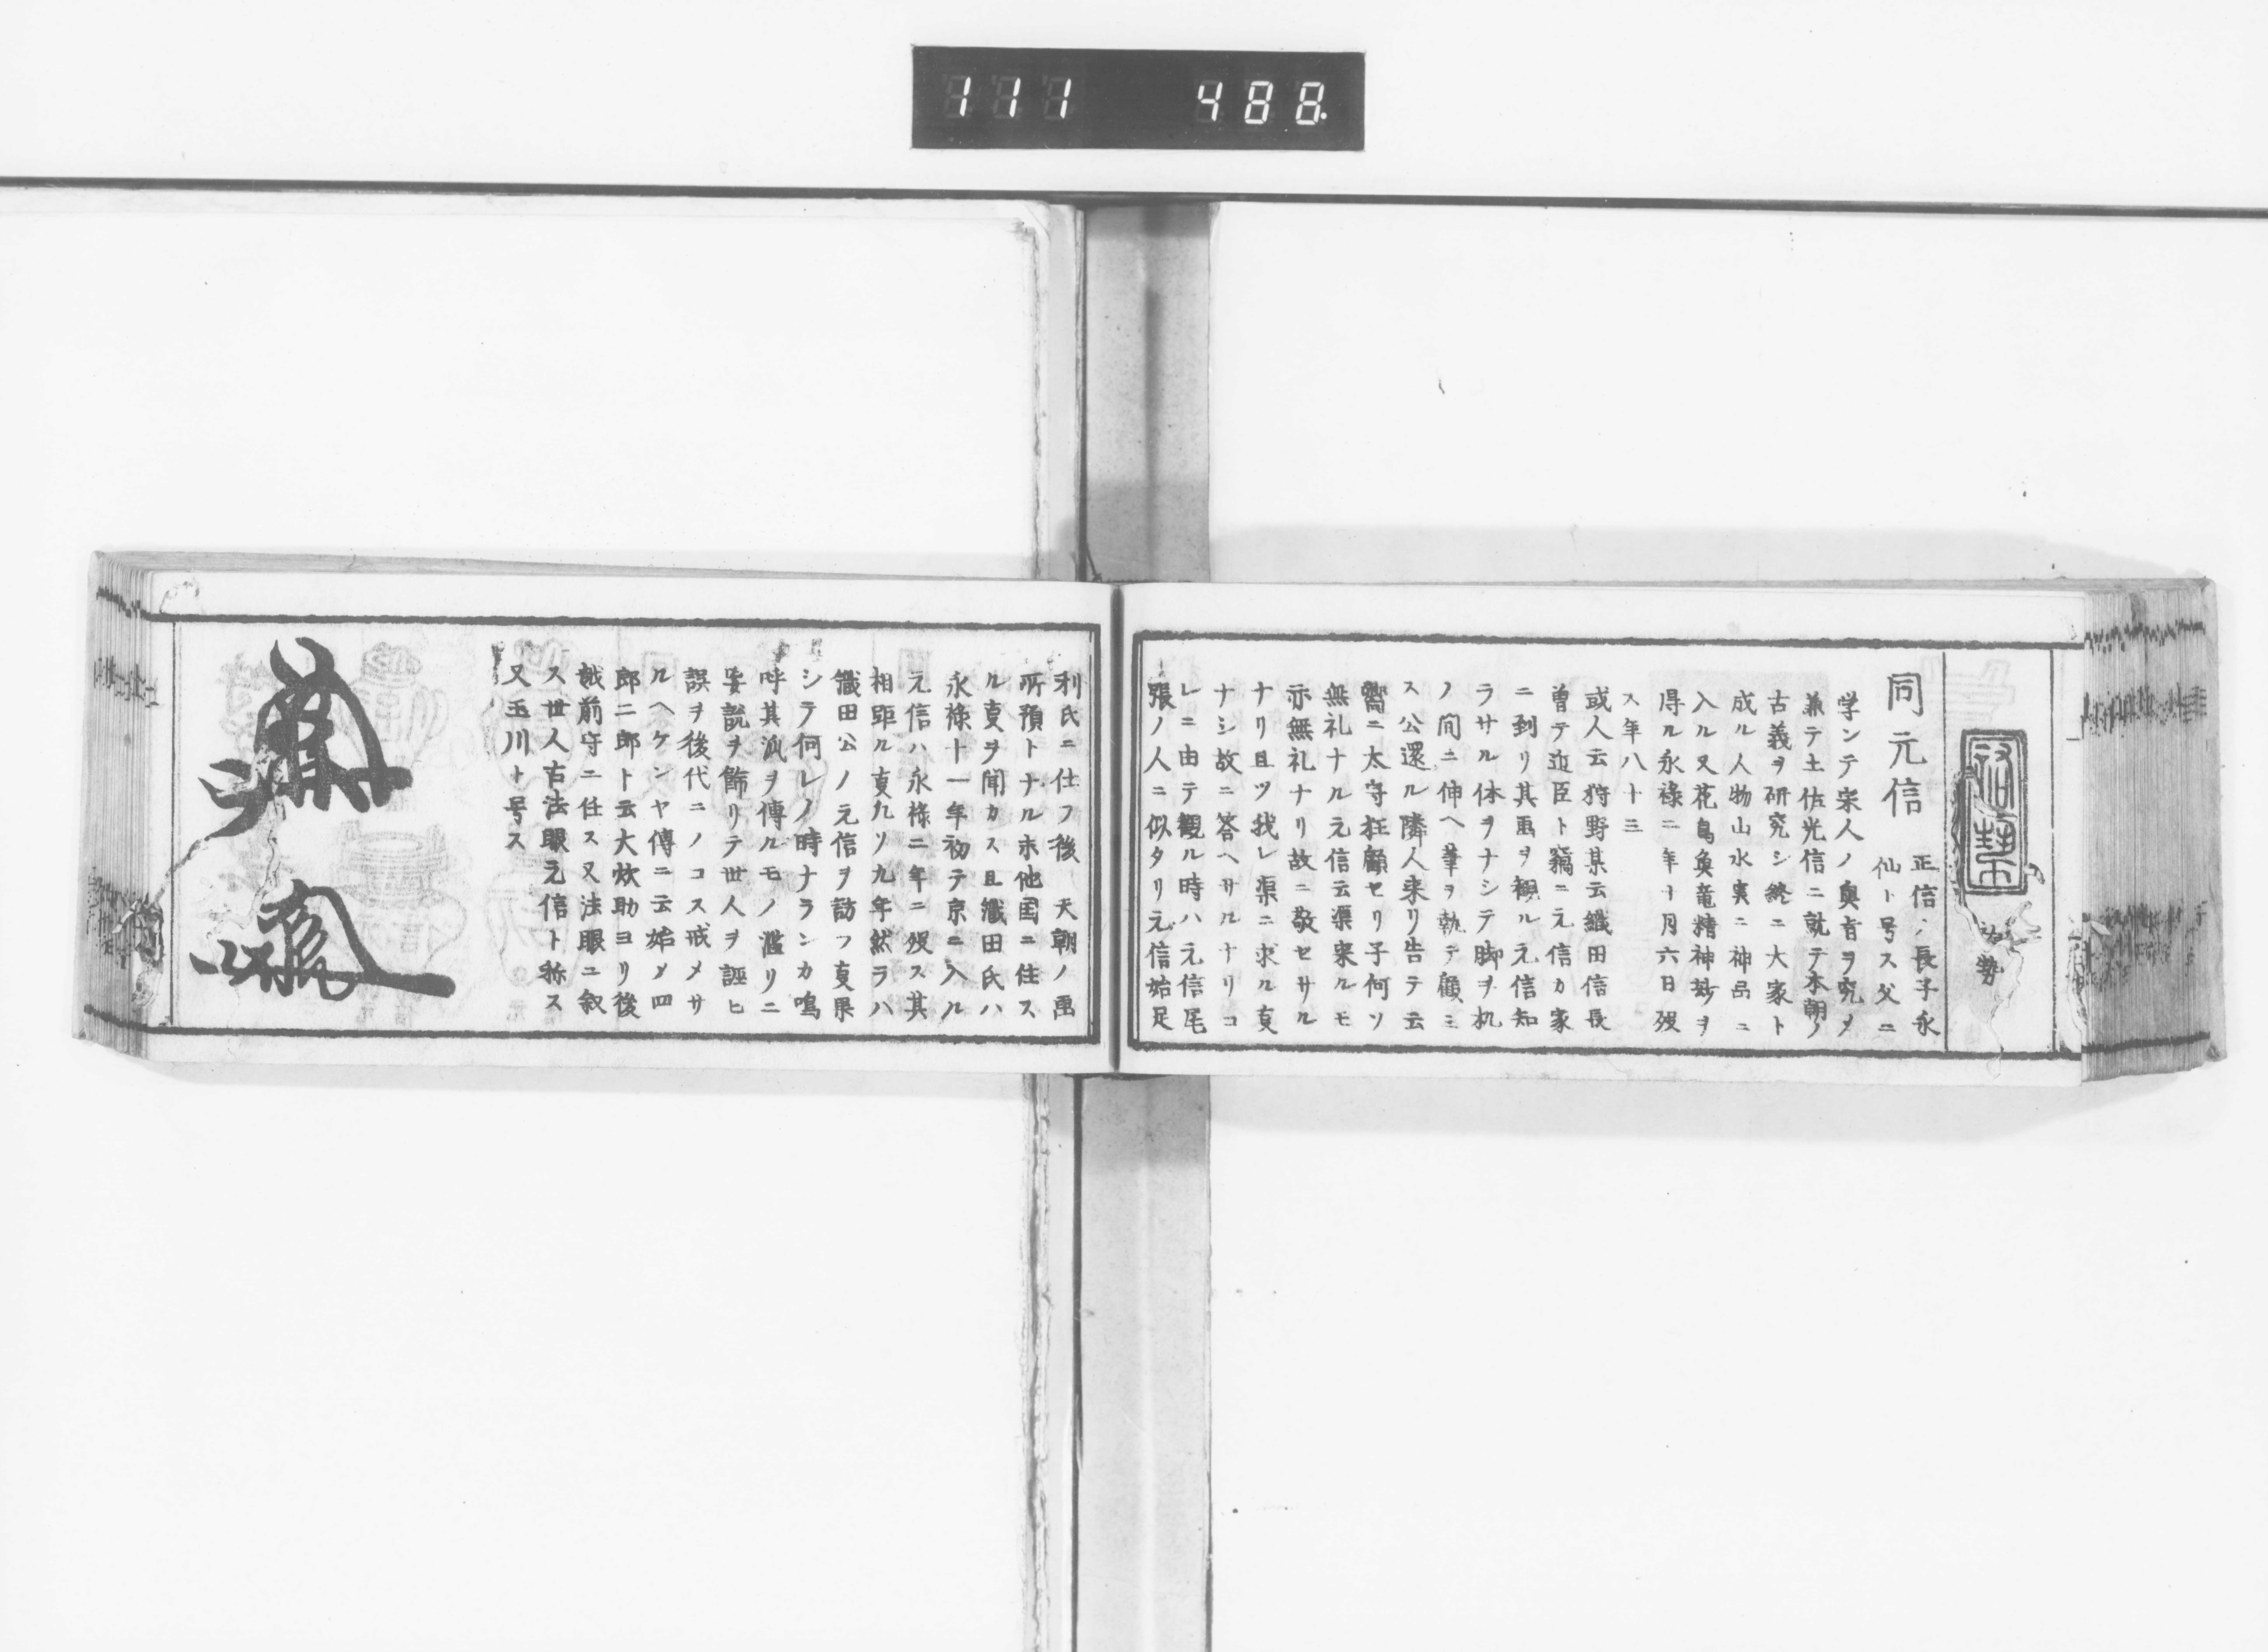 111 488.
同元信
正信ノ長子永
仙ト号ス父ニ
学ンテ宋人ノ奥旨ヲ究メ
兼テ土佐光信ニ就テ本朝ノ
古義ヲ研究シ終ニ大家ト
成ル人物山水実ニ神品ニ
入ル又花鳥奐竜精神妙ヲ
得ル永禄二年十月六日歿
ス年八十三
或人云狩野某云織田信長
曽テ近臣ト竊ニ元信カ家
ニ到リ其画ヲ観ル元信知
ラサル体ヲナシテ脚ヲ机
ノ間ニ伸ヘ筆ヲ執テ顧ミ
ス公還ル隣人来リ告テ云
嚮ニ太守枉顧セリ子何ソ
無礼ナル元信云渠来ルモ
亦無礼ナリ故ニ敬セサル
ナリ且ツ我レ渠ニ求ル㕝
ナシ故ニ答ヘサルナリコ
レニ由テ観ル時ハ元信尾
張ノ人ニ似タリ元信始足
利氏ニ仕フ後 天朝ノ画
所預トナル未他国ニ住ス
ル㕝ヲ聞カス且織田氏ハ
永禄十一年初テ京ニ入ル
元信ハ永禄二年ニ歿ス其
相距ル㕝九ソ九年然ラハ
織田公ノ元信ヲ訪フ㕝果
シテ何レノ時ナランカ嗚
呼其派ヲ傳ルモノ濫リニ
妄説ヲ飾リテ世人ヲ誣ヒ
誤ヲ後代ニノコス戒メサ
ルヘケンヤ傳ニ云始メ四
郎二郎ト云大炊助ヨリ後
越前守ニ任ス又法眼ニ叙
ス世人古法眼元信ト称ス
又玉川ト号ス